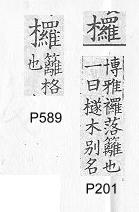 欏
籬格
也
P589
欏
博雅欏落籬也
一曰檖木别名
P201